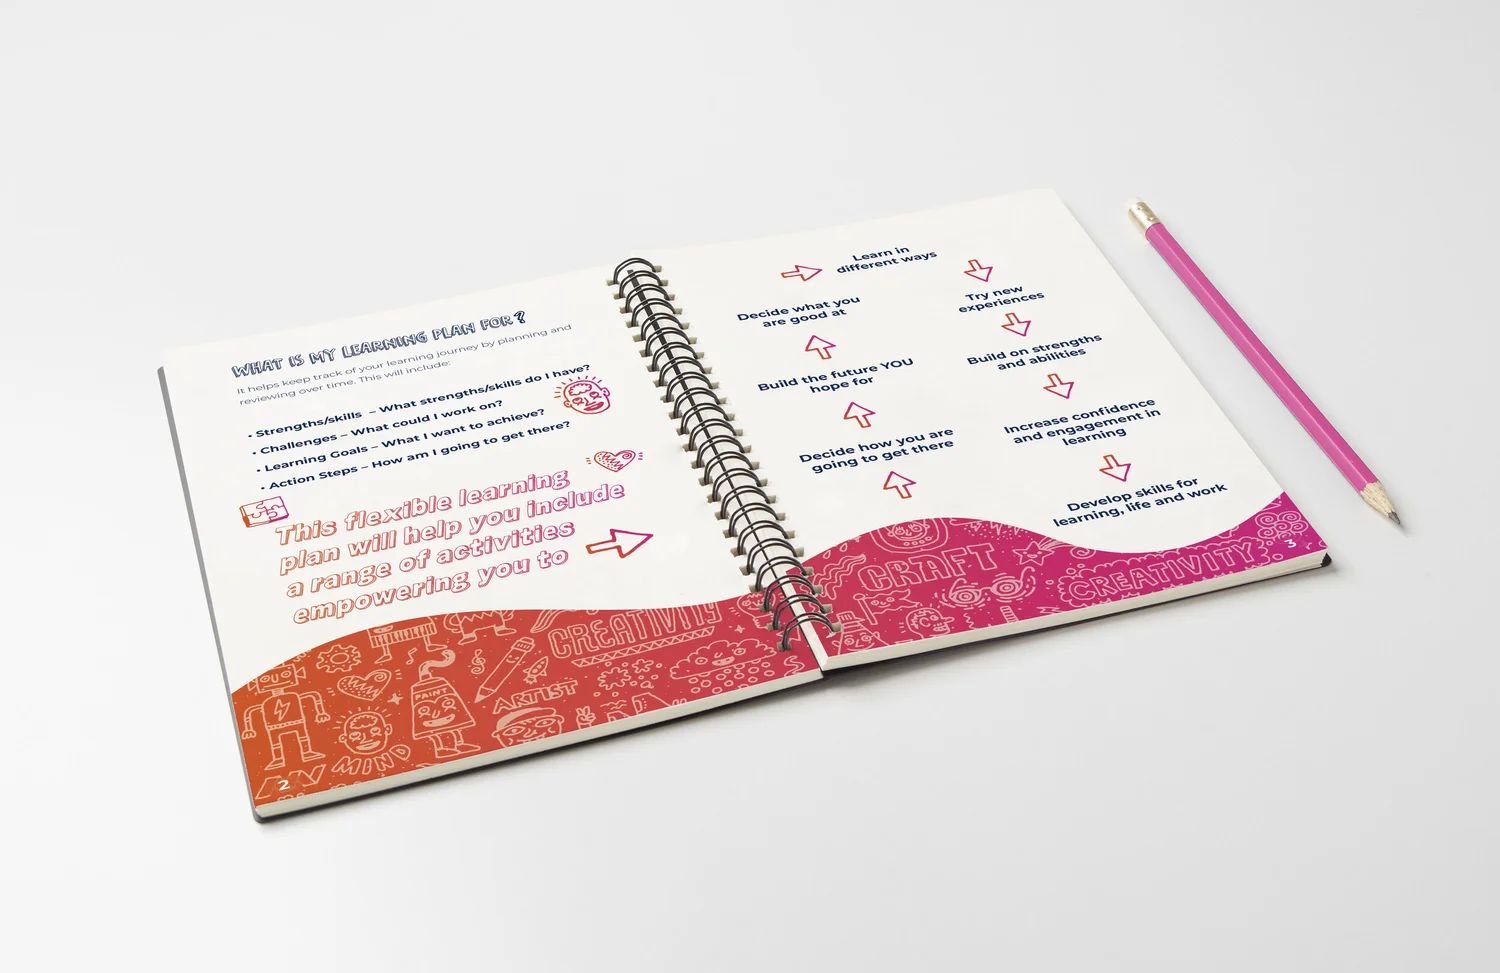 WHAT IS MY LEARNING PLAN FOR?
It helps keep track of your learning journey by planning and
reviewing over time. This will include:
• Strengths/skills – What strengths/skills do I have?
• Challenges – What could I work on?
• Learning Goals – What I want to achieve?
• Action Steps – How am I going to get there?
This flexible learning
plan will help you include
a range of activities
empowering you to
CREATIVITY
PAINT
ARTIST
MIND
2
Decide how you are
going to get there
Build the future YOU
hope for
Decide what you
are good at
Learn in
different ways
Try new
experiences
Build on strengths
and abilities
Increase confidence
and engagement in
learning
Develop skills for
learning, life and work
CRAFT
CREATIVITY
3